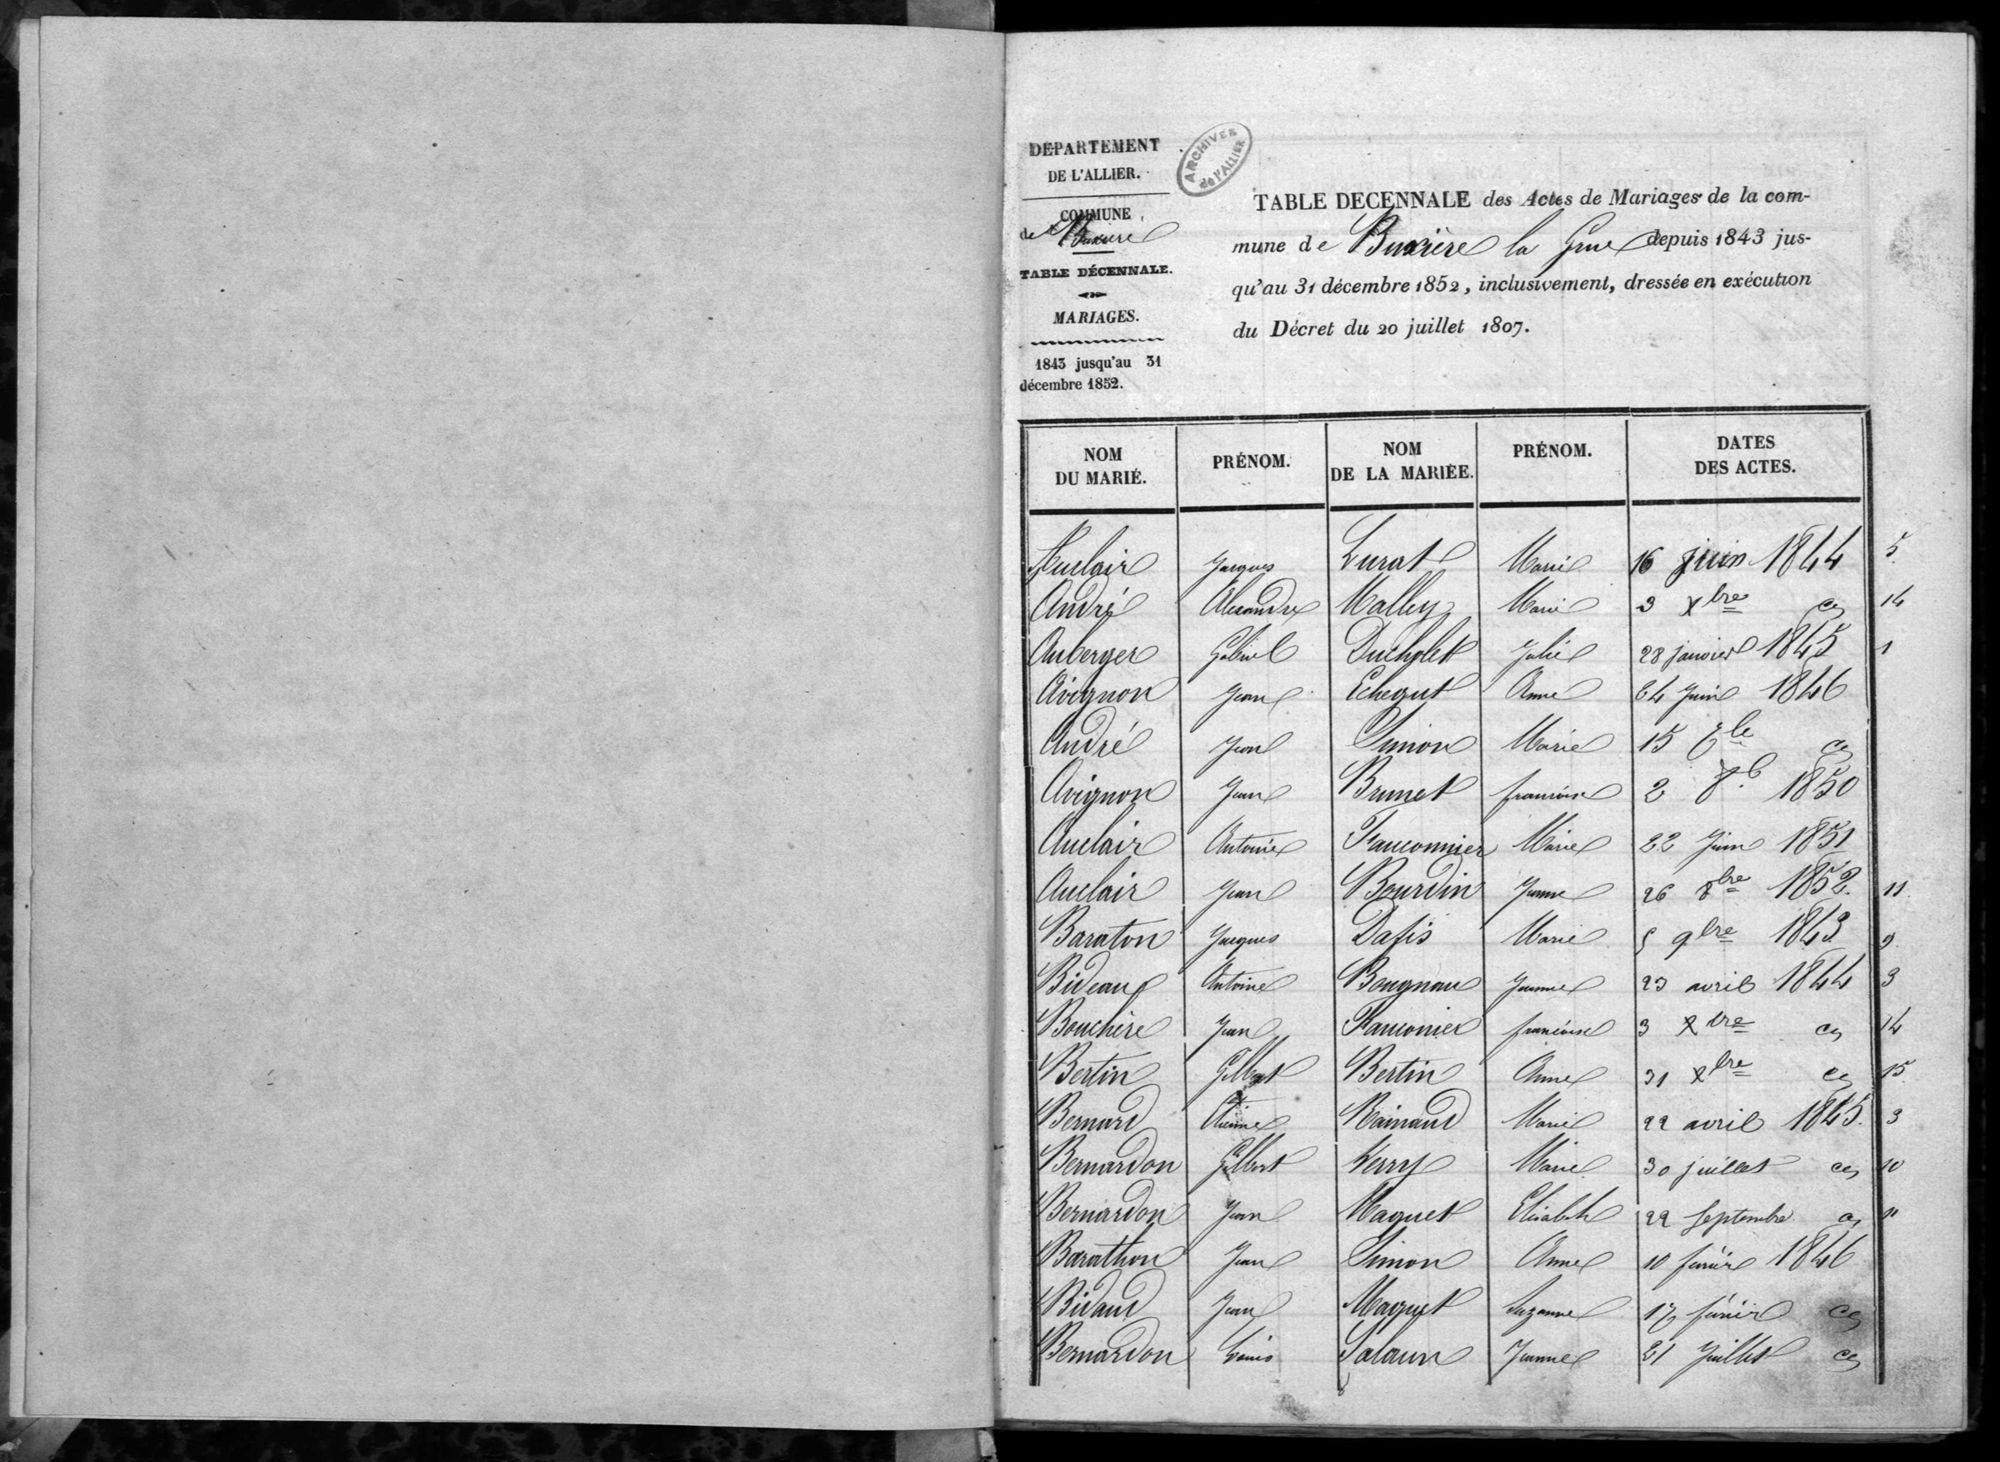 DEPARTEMENT
DE L'ALLIER.
COMMUNE
de Buxiere
TABLE DÉCENNALE.
MARIAGES.
1843 jusqu'au 31
décembre 1852.
ARCHIVES
de l'ALLIER
TABLE DECENNALE des Actes de Mariages de la com-
mune de Buxière la Grue depuis 1843 jus-
qu'au 31 décembre 1852, inclusivement, dressée en exécution
du Décret du 20 juillet 1807.
NOM DU MARIÉ. PRÉNOM. NOM DE LA MARIÉE. PRÉNOM. DATES DES ACTES.
Auclair Jacques Lurat Marie 16 juin 1844 5
André Alexandre Malley Marie 3 xbre 14
Auberger Gabriel Ducholet Julie 28 janvier 1845 1
Avignon Jean Echegut Anne 24 Juin 1846
André Jean Simon Marie 15
Avignon Jean Brunet francoise 2 1850
Auclair Antoine Fauconnier Marie 22 Juin 1851
Auclair Jean Bourdin Jeanne 26 8bre 1852 11
Baraton Jacques Dafis Marie 5 9bre 1843 9
Bideau Antoine Bougnau Jeanne 23 avril 1844 3
Bouchère Jean Fauconier francoise 3 xbre 14
Bertin Gilbert Bertin Anne 31 xbre 15
Bernard Etienne Rainaud Marie 22 avril 1845. 3
Bernardon Gilbert Verry Marie 30 juillet 10
Bernardon Jean Maquet Elisabeth 22 Septembre 11
Barathon Jean Simon Anne 10 février 1846
Bidaud Jean Maquet Suzanne 17 février
Bernardon Louis Salaun Jeanne 21 Juillet